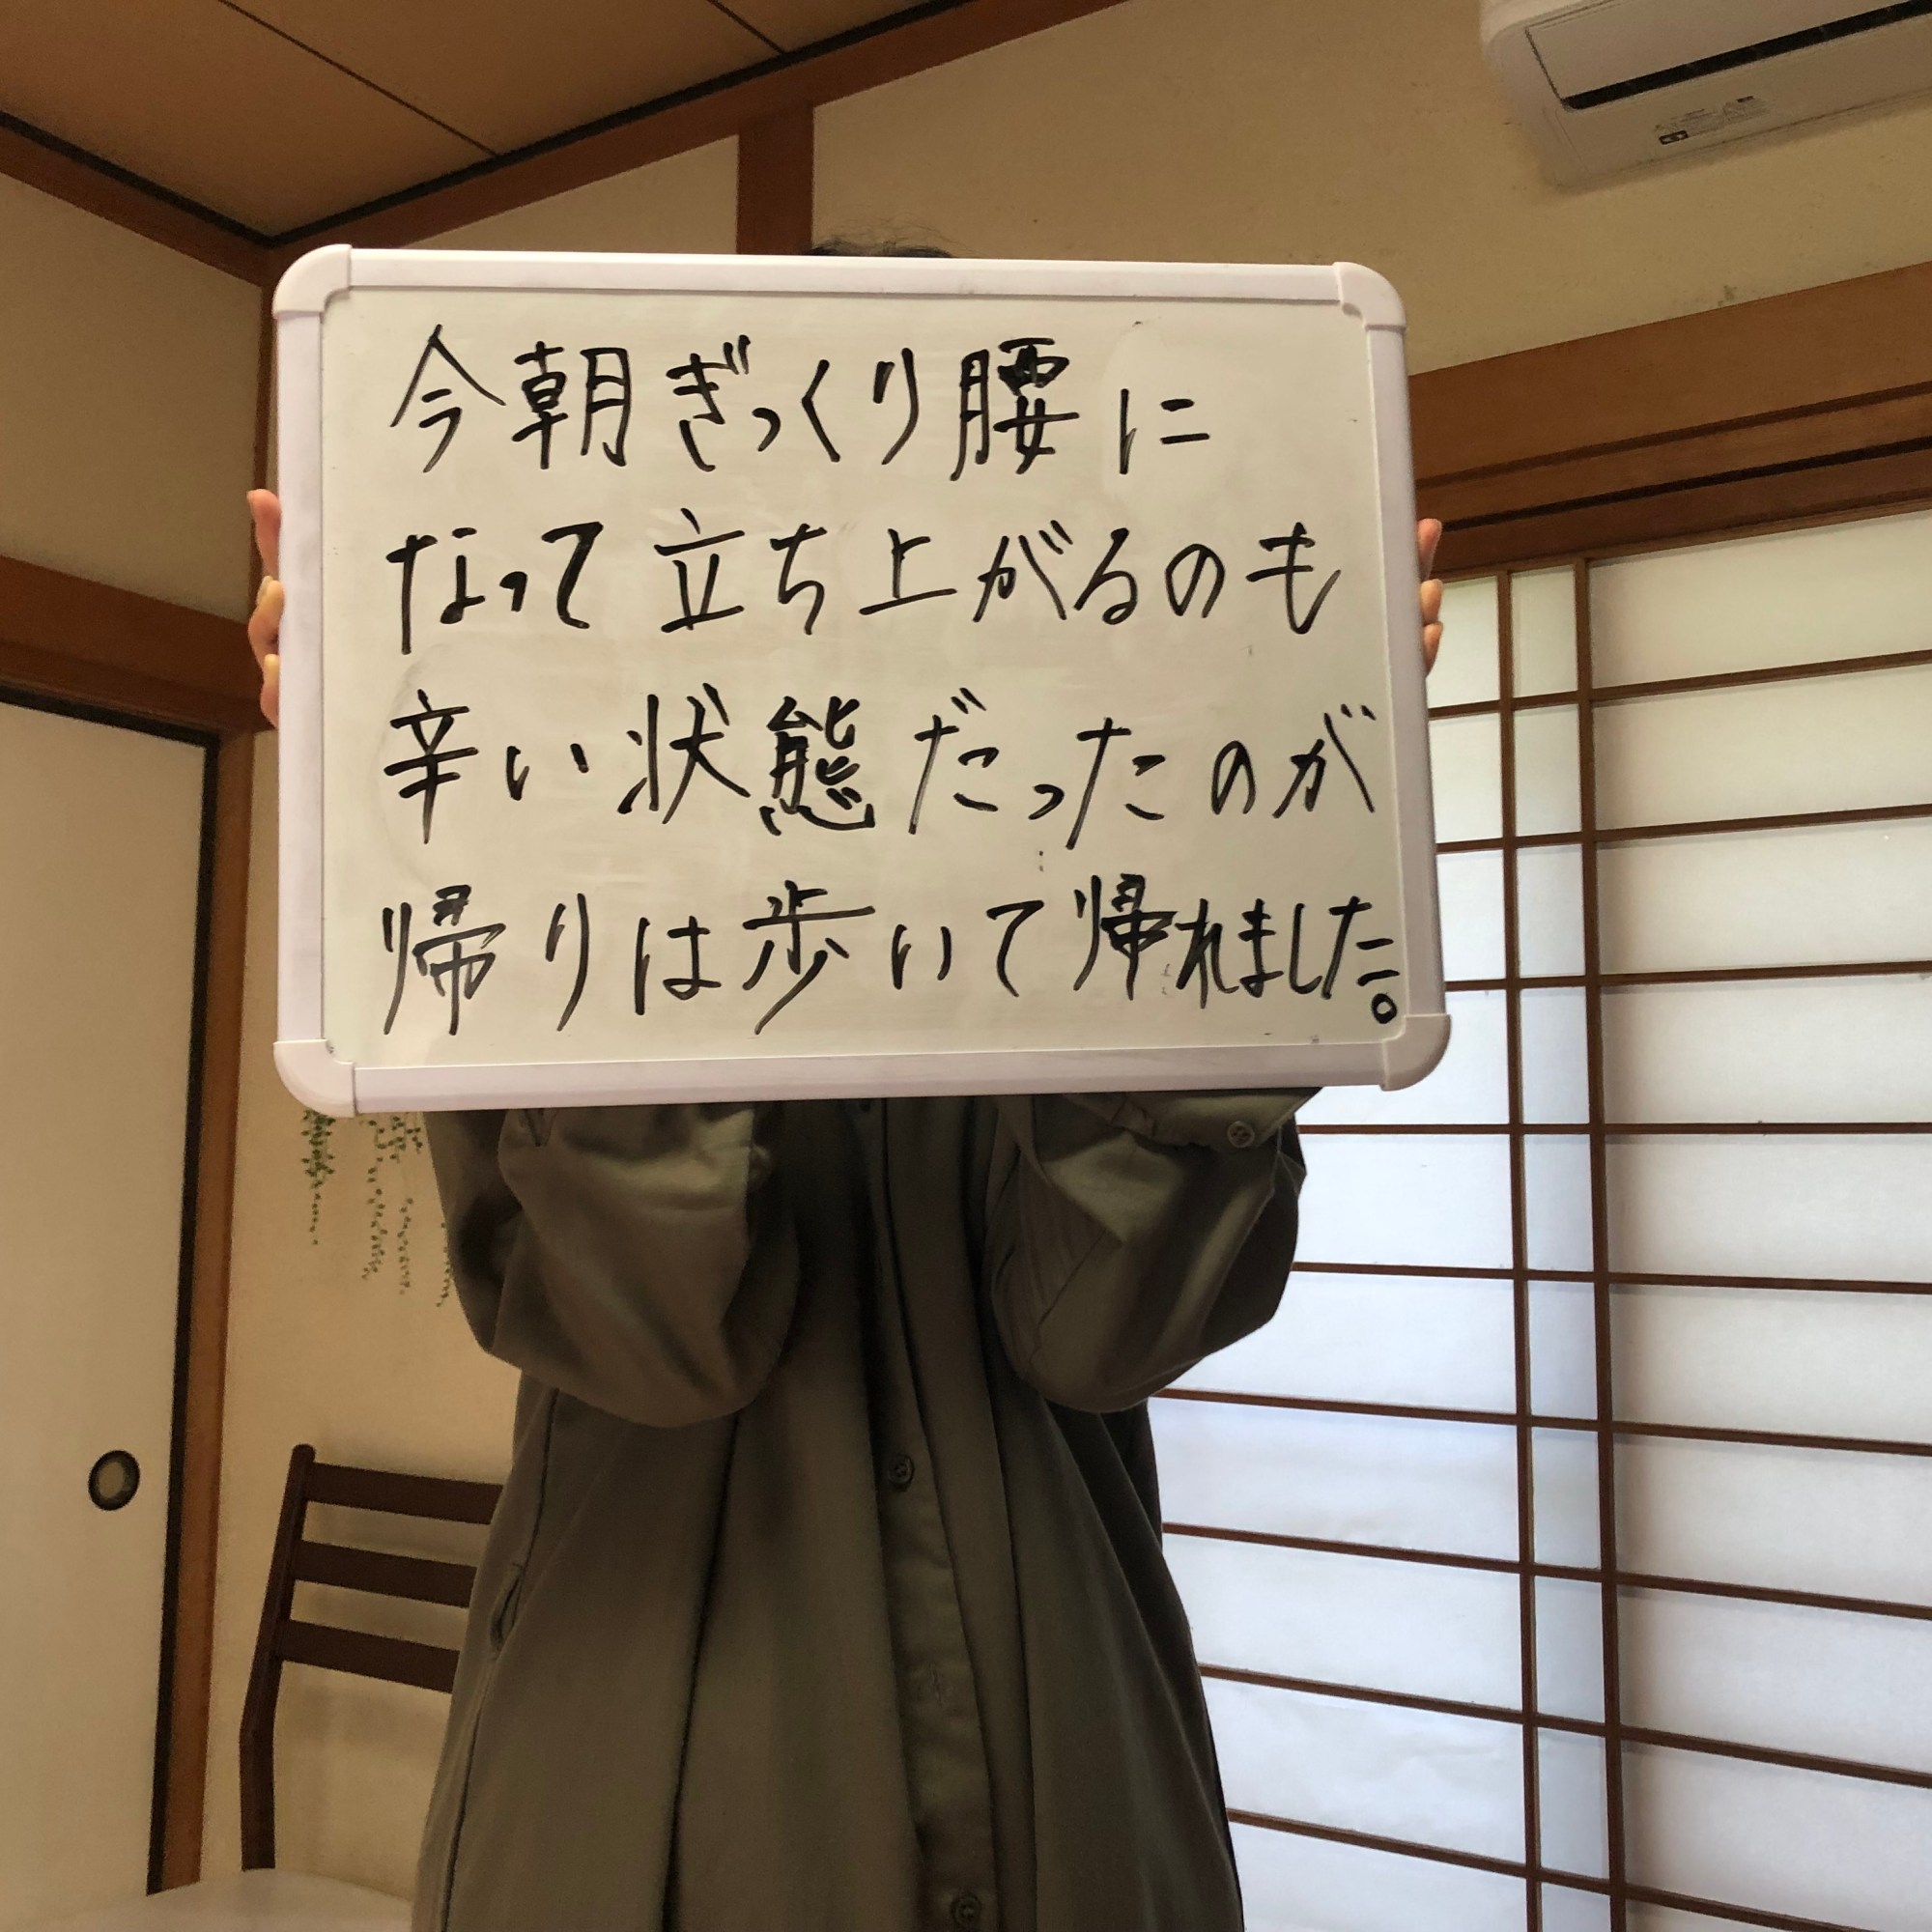 今朝ぎっくり腰に
なって立ち上がるのも
辛い状態だったのが
帰りは歩いて帰れました。